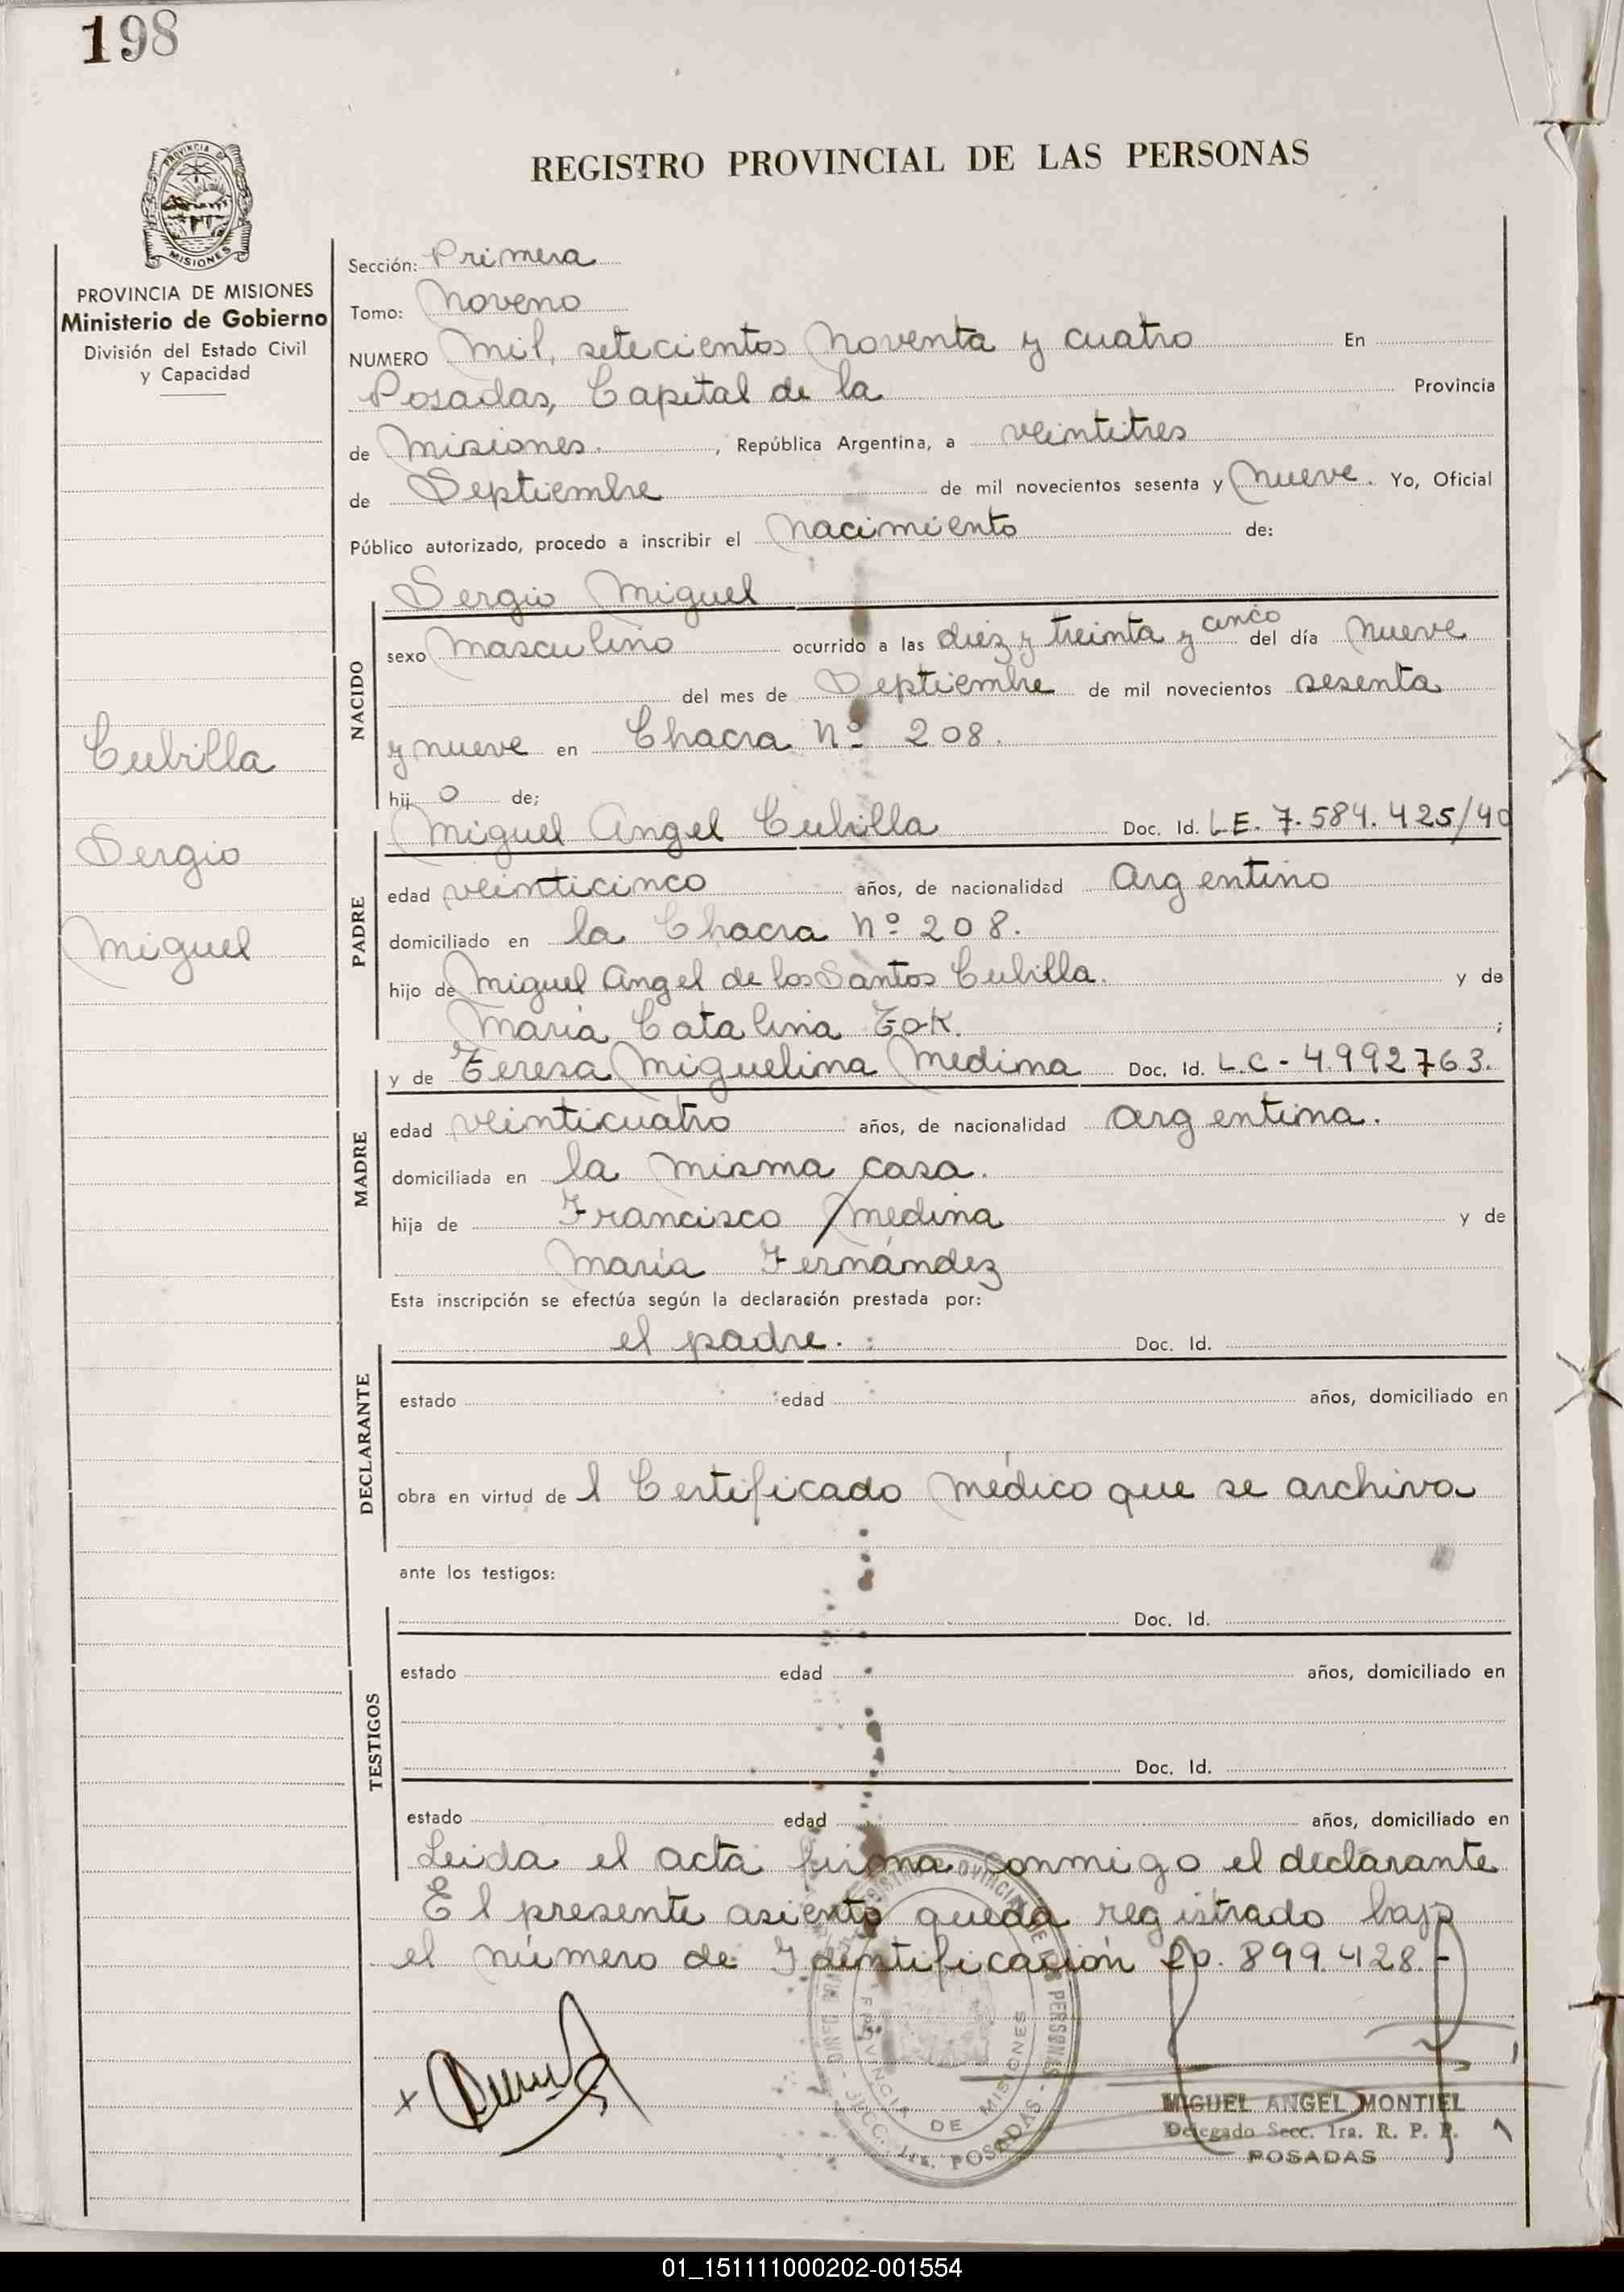 198
REGISTRO PROVINCIAL DE LAS PERSONAS
PROVINCIA DE MISIONES
Ministerio de Gobierno
División del Estado Civil
y Capacidad
Cubilla
Sergio
Miguel
Sección: Primera
Tomo: Noveno
NUMERO Mil, setecientos noventa y cuatro En
Posadas, Capital de la Provincia
de Misiones. , República Argentina, a veintitres
de Septiembre de mil novecientos sesenta y nueve. Yo, Oficial
Público autorizado, procedo a inscribir el nacimiento de:
Sergio Miguel
NACIDO
sexo Masculino ocurrido a las diez y treinta y cinco del día nueve
del mes de Septiembre de mil novecientos sesenta
y nueve en Chacra Nº 208.
hij o de;
Miguel Angel Cubilla Doc. Id. L.E. 7.584.425/40
PADRE
edad veinticinco años, de nacionalidad Argentino
domiciliado en la Chacra Nº 208.
hijo de Miguel Angel de los Santos Cubilla. y de
María Catalina Tok. ;
y de Teresa Miguelina Medina Doc. Id. L.C - 4.992763.
MADRE
edad veinticuatro años, de nacionalidad Argentina.
domiciliada en la misma casa.
hija de Francisco Medina y de
María Fernández
Esta inscripción se efectúa según la declaración prestada por:
el padre. : Doc. Id.
DECLARANTE
estado edad años, domiciliado en
obra en virtud de l Certificado médico que se archiva
ante los testigos:
Doc. Id.
TESTIGOS
estado edad años, domiciliado en
Doc. Id.
estado edad años, domiciliado en
Leida el acta firma conmigo el declarante
El presente asiento queda registrado bajo
el número de Identificación 20.899.428.-
PROVINCIA DE MISIONES
SECC. 1ra. POSADAS
MIGUEL ANGEL MONTIEL
Delegado Secc. 1ra. R. P. P.
POSADAS
01_151111000202-001554